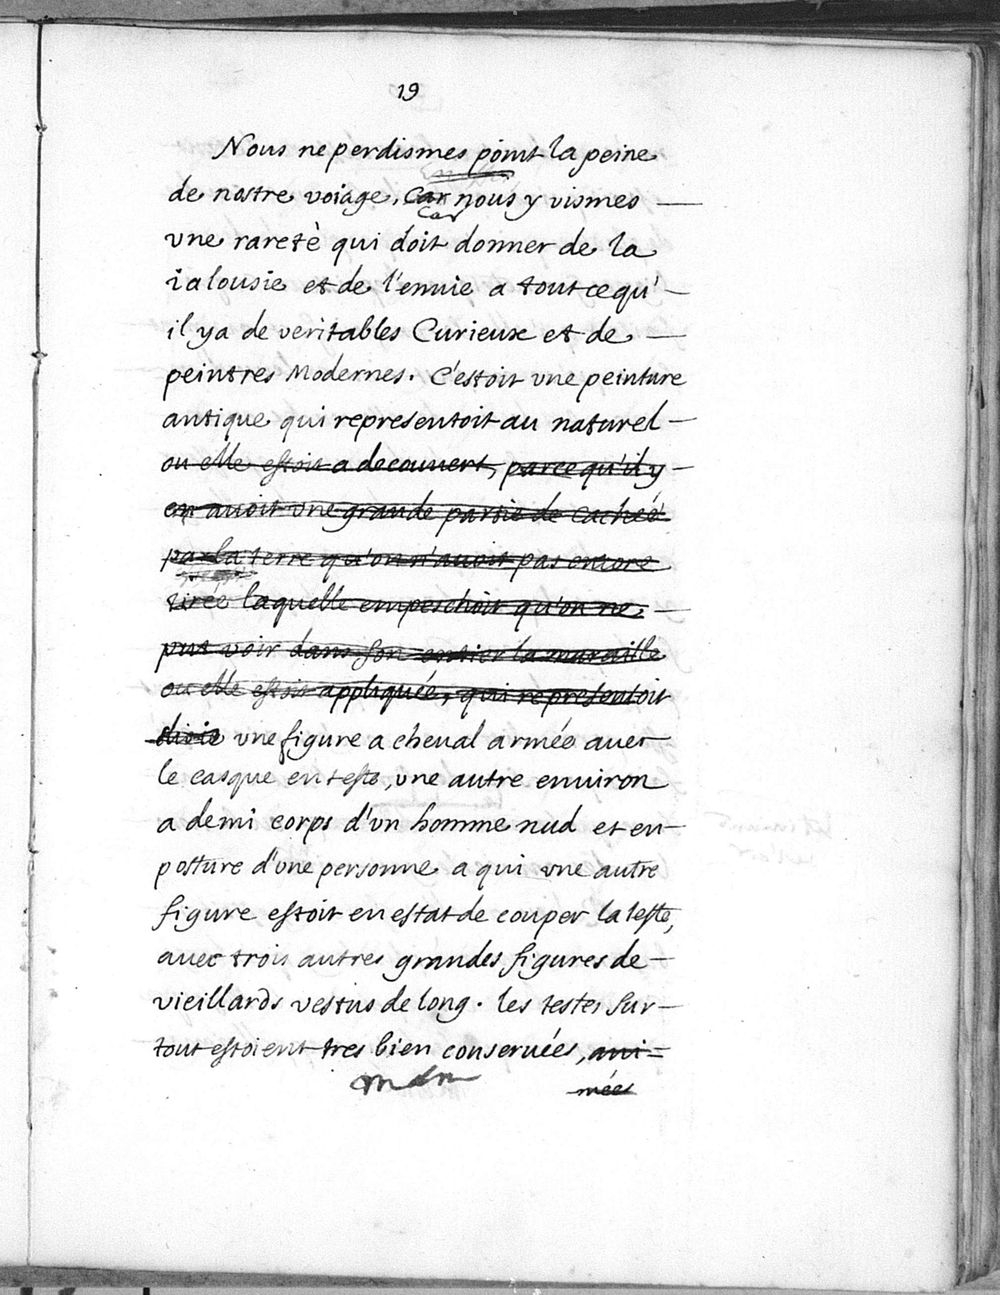 19
Nous ne perdismes point la peine
de nostre voiage, Car nous y vismes
Car
vne raretè qui doit donner de la
ialousie et de l'enuie a tout ce qu'
il y a de veritables Curieux et de
peintres Modernes. C'estoit vne peinture
antique qui representoit au naturel
ou elle estoit a decouuert, parce qu'il y
en auoit vne grande partie de cachée
par la terre qu'on n'auoit pas encore
tirée laquelle empeschoit qu'on ne
put voir dans son entier la muraille
ou elle estoit appliquée, qui representoit
vne figure a cheual armée auec
le casque en teste, vne autre enuiron
a demi corps d'vn homme nud et en
posture d'vne personne a qui vne autre
figure estoit en estat de couper la teste,
auec trois autres grandes figures de
vieillards vestus de long. les testes sur
tout estoient tres bien conseruées, ani=
mées